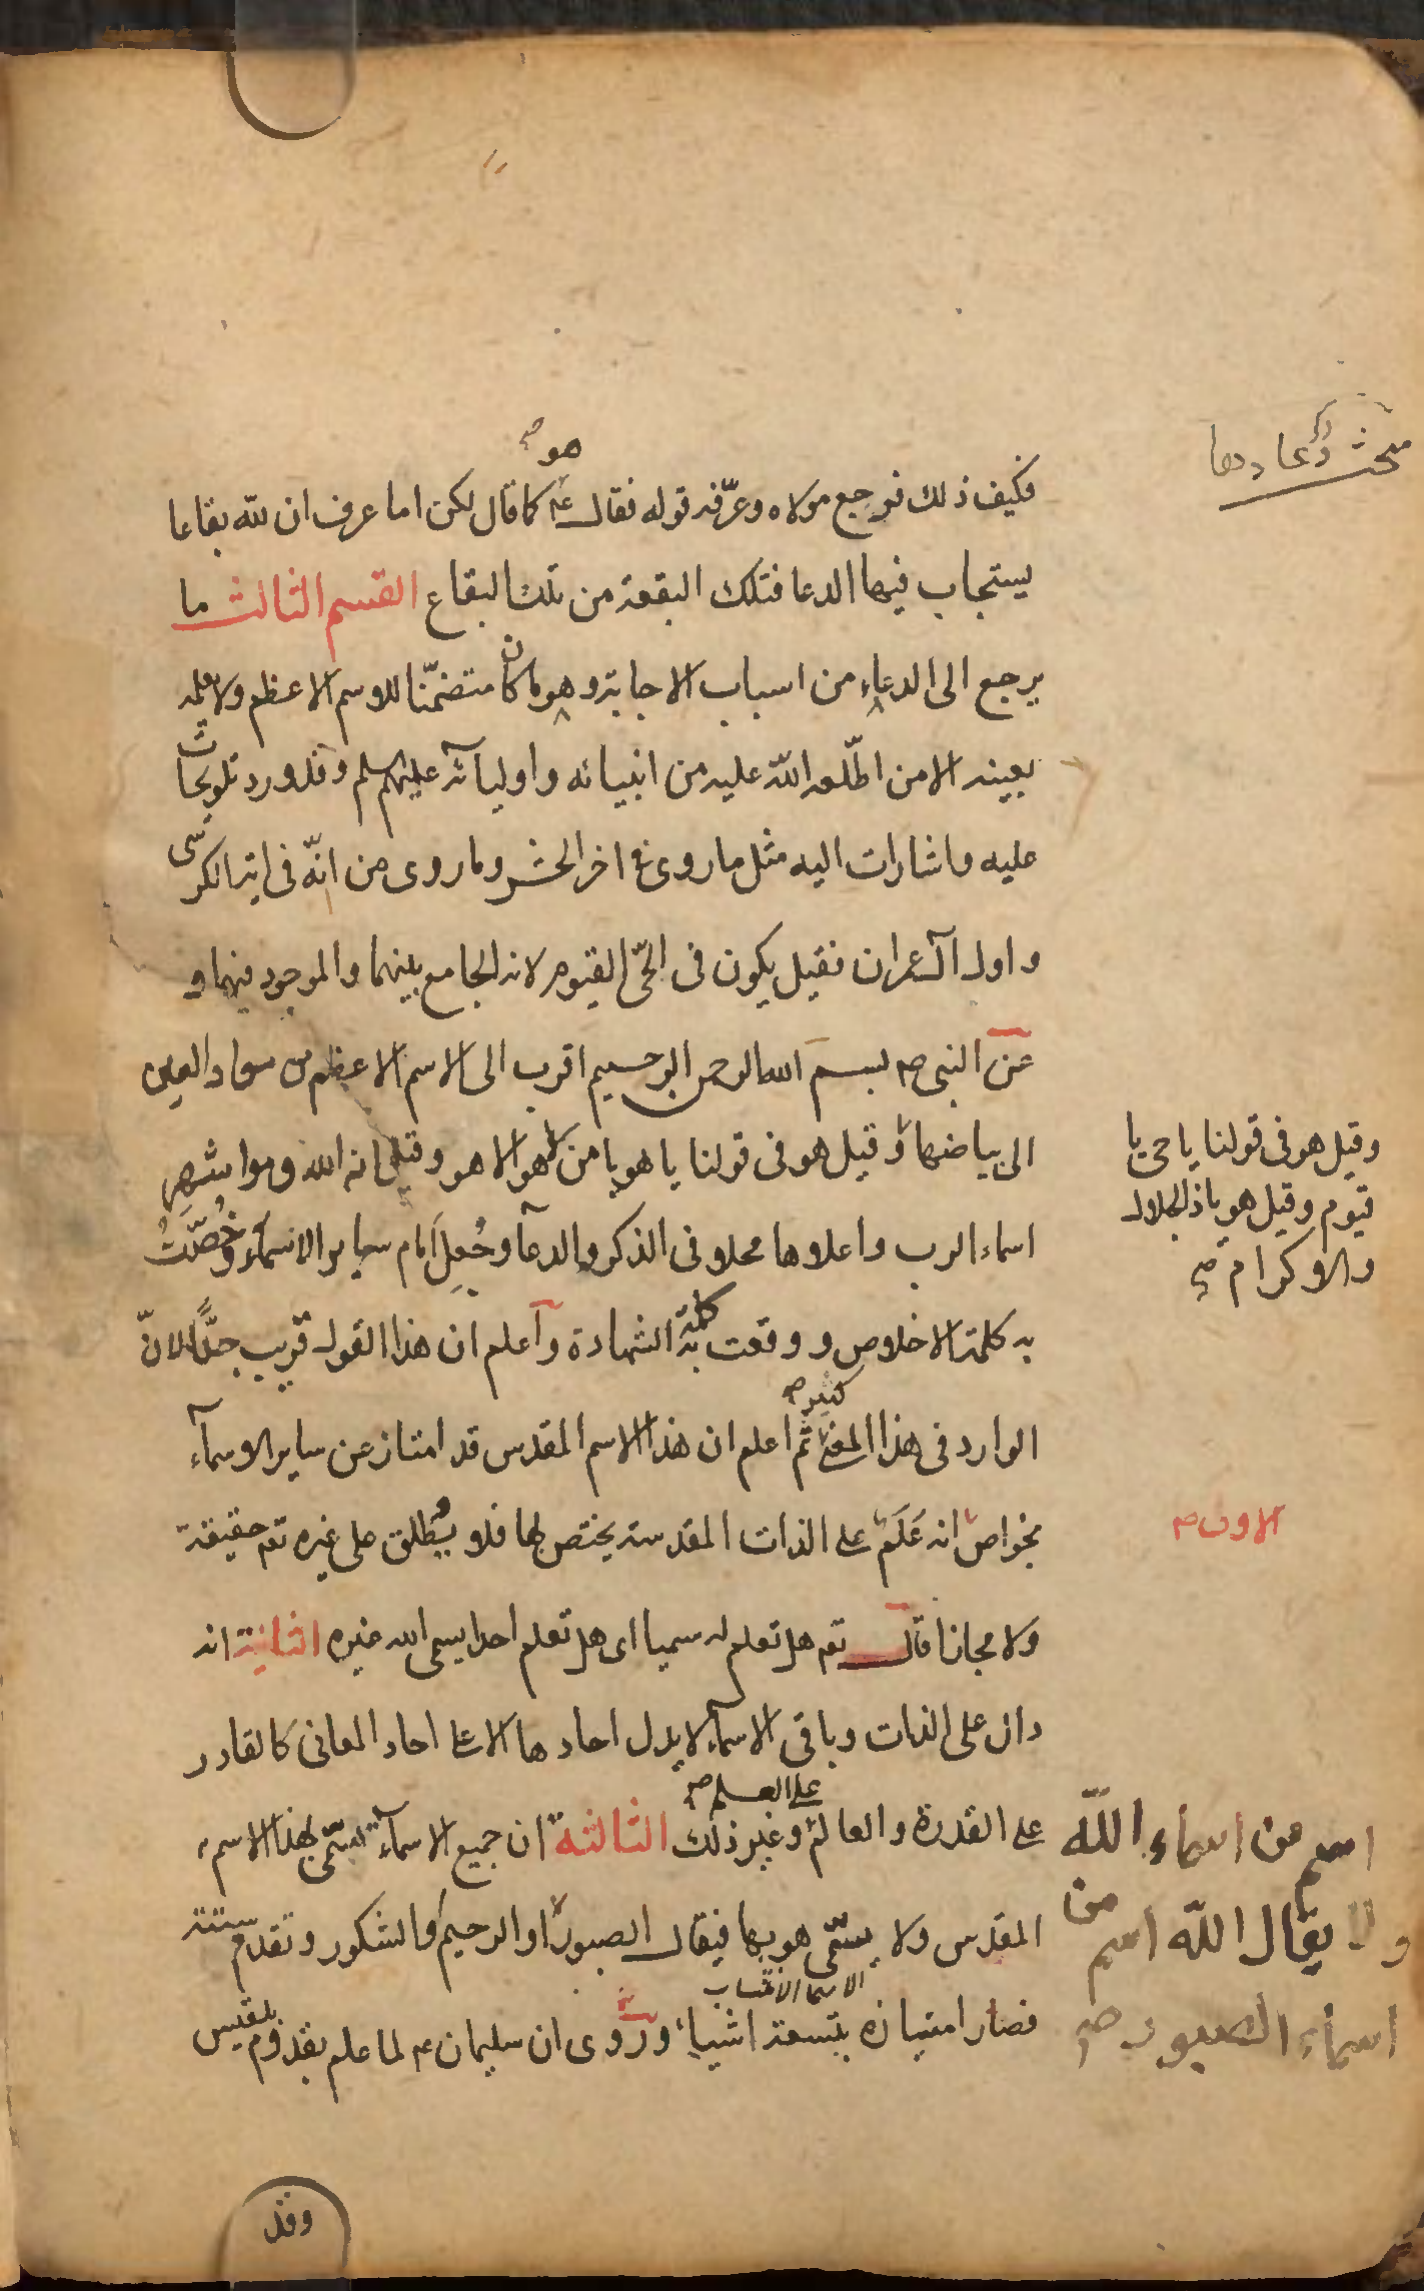 هو صح
فكيف ذلك فرجع مولاه وعرّفه قوله فقال عم كما قال لكن اما عرف ان لله بقاعا
يستجاب فيها الدعا فتلك البقعة من تلك البقاع القسم الثالث ما
يرجع الى الدعاء من اسباب الاجابة وهو ما كان متضمّنا للاسم الاعظم ولا يعلمه
بعينه الا من اطّلعه الله عليه من انبيائه واوليآئه عليهم سلم وقد ورد تلويحات
عليه واشارات اليه مثل ما روى في اخر الحشر وما روى من انّه في اية الكرسّى
واول آل عمران فقيل يكون فى الحّى القيوم لانه الجامع بينهما والموجود فيهما و
عن النبى ص بسم الله الرحمن الرحيم اقرب الى الاسم الاعظم من سواد العين
الى بياضها وقيل هو فى قولنا يا هو يا من لا هو الا هو وقيل انه الله وهو اشهر
اسماء الرب واعلاها محلا فى الذكر والدعآ وجُعِلَ اَمام ساير الاسمآء وخُصّت
به كلمة الاخلاص ووقعت به كلمة الشهادة وآعلم ان هذا القول قريب جدًّا لانّ
كثير صح
الوارد فى هذا المعنى ثم اعلم ان هذا الاسم المقدس قد امتاز عن ساير الاسمآء
بخواص انه عَلَم على الذات المقدسة يختص لها فلا يُطلق على غيره تعم حقيقة
ولا مجازا قال تعم هل تعلم له سميا اى هل تعلم احدا يسمى الله غيره الثانية انه
دال على الذات وباقى الاسمآء لا يدل احادها الا على احاد المعانى كالقادر
على العلم صح
على القدرة والعالم وغير ذلك الثالثة ان جميع الاسمآء تسّمى بهذا الاسم
المقدس ولا يسّمى هو بها فيقال الصبور او الرحيم والشكور وتقدم ستة
فصار امتيازه بتسعة اشياء وروى ان سليمان ع لما علم بقدوم بلقيس
وقد
وقيل هو فى قولنا يا حى يا
قيوم وقيل هو يا ذالجلال
والاكرام صح
الاولى ص
اسم من اسماء الله
ولا يقال الله اسم من
اسماء الصبور صح